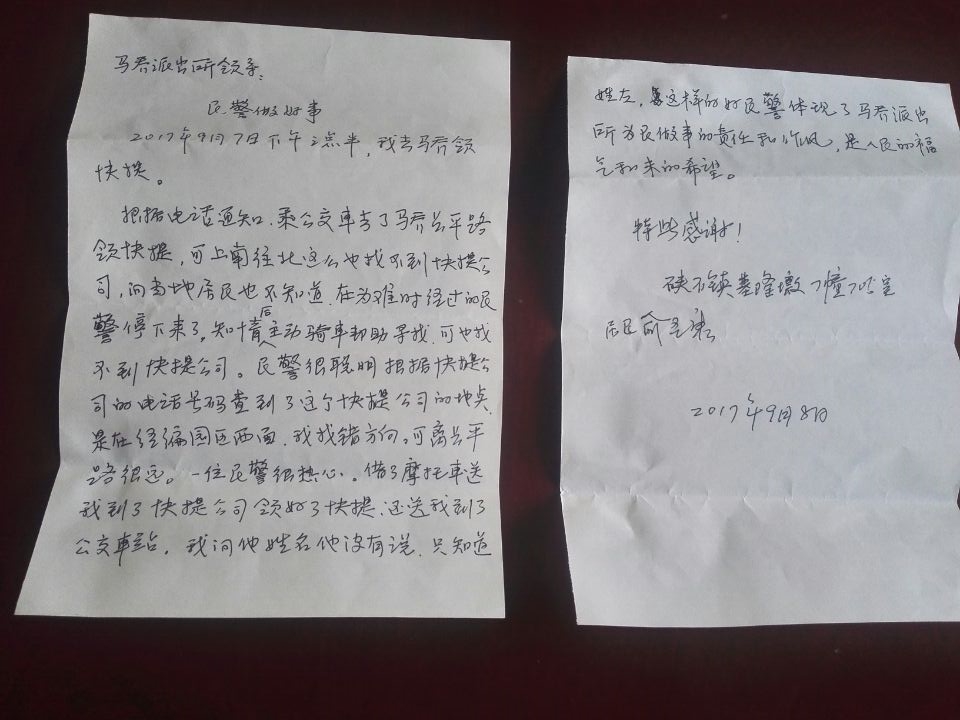 马乔派出所领导:
民警做好事
2017年9月7日下午2点半,我去马乔领
快提。
根据电话通知,乘公交车去了马乔兴平路
领快提,可上南往北这么也找不到快提公
司,问当地居民也不知道,在为难时经过的民
警停下来了,知情后主动骑车帮助寻找,可也找
不到快提公司。民警很聪明根据快提公
司的电话号码查到了这个快提公司的地点
是在经编园区西面,我找错方向,可离兴平
路很远。一位民警很热心。借了摩托车送
我到了快提公司领好了快提,还送我到了
公交车站,我问他姓名他没有说,只知道
姓左,这样的好民警体现了马乔派出
所为民做事的责任和作风,是人民的福
气和未的希望。
特此感谢!
硖石镇基隆墩7幢
居民俞
2017年9月8日